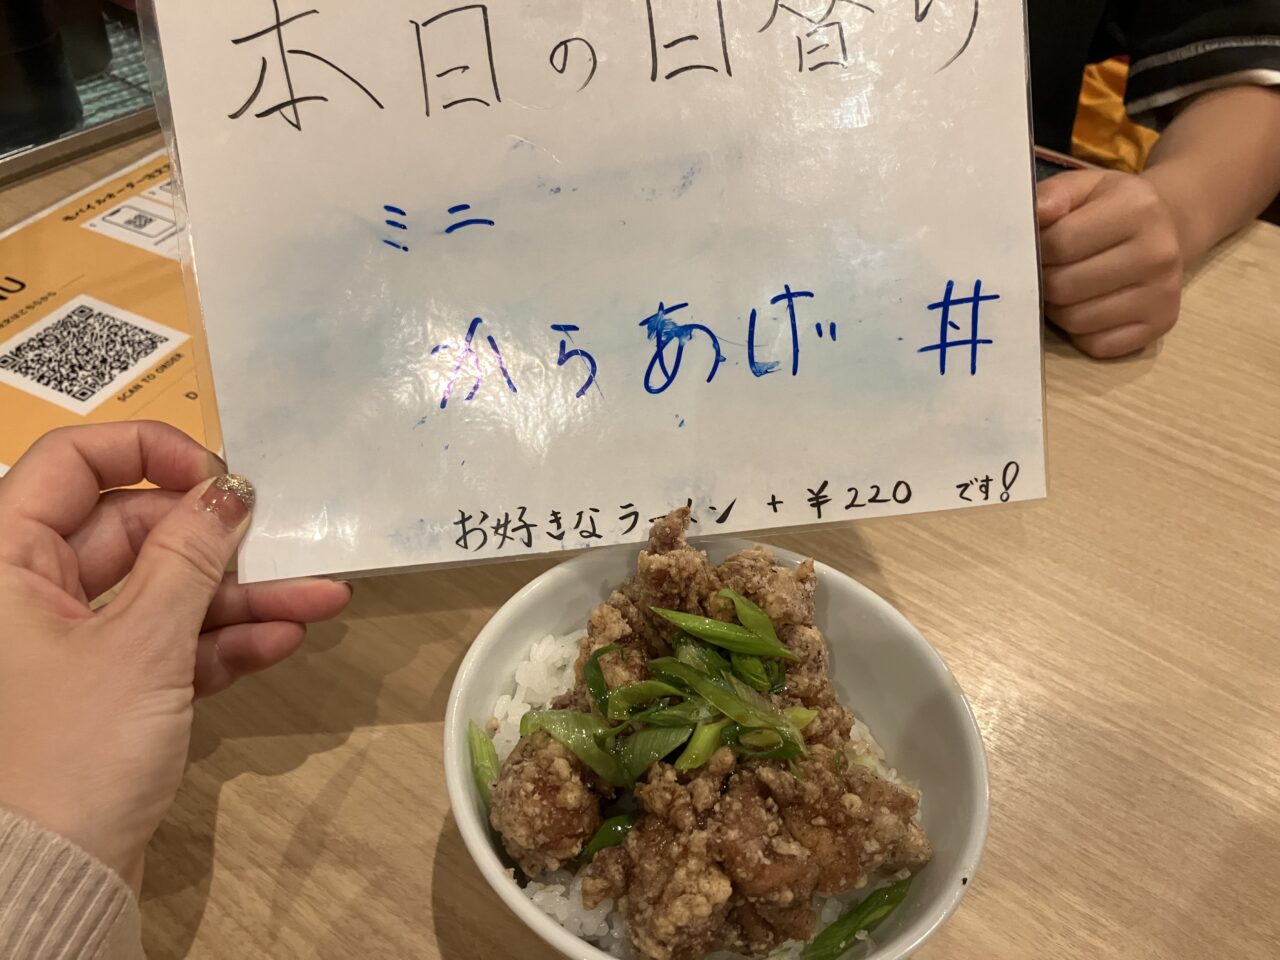 本日の日替り
ミニ
からあげ丼
お好きなラーメン + ¥220 です!
モバイルオーダー
NU
SCAN TO ORDER